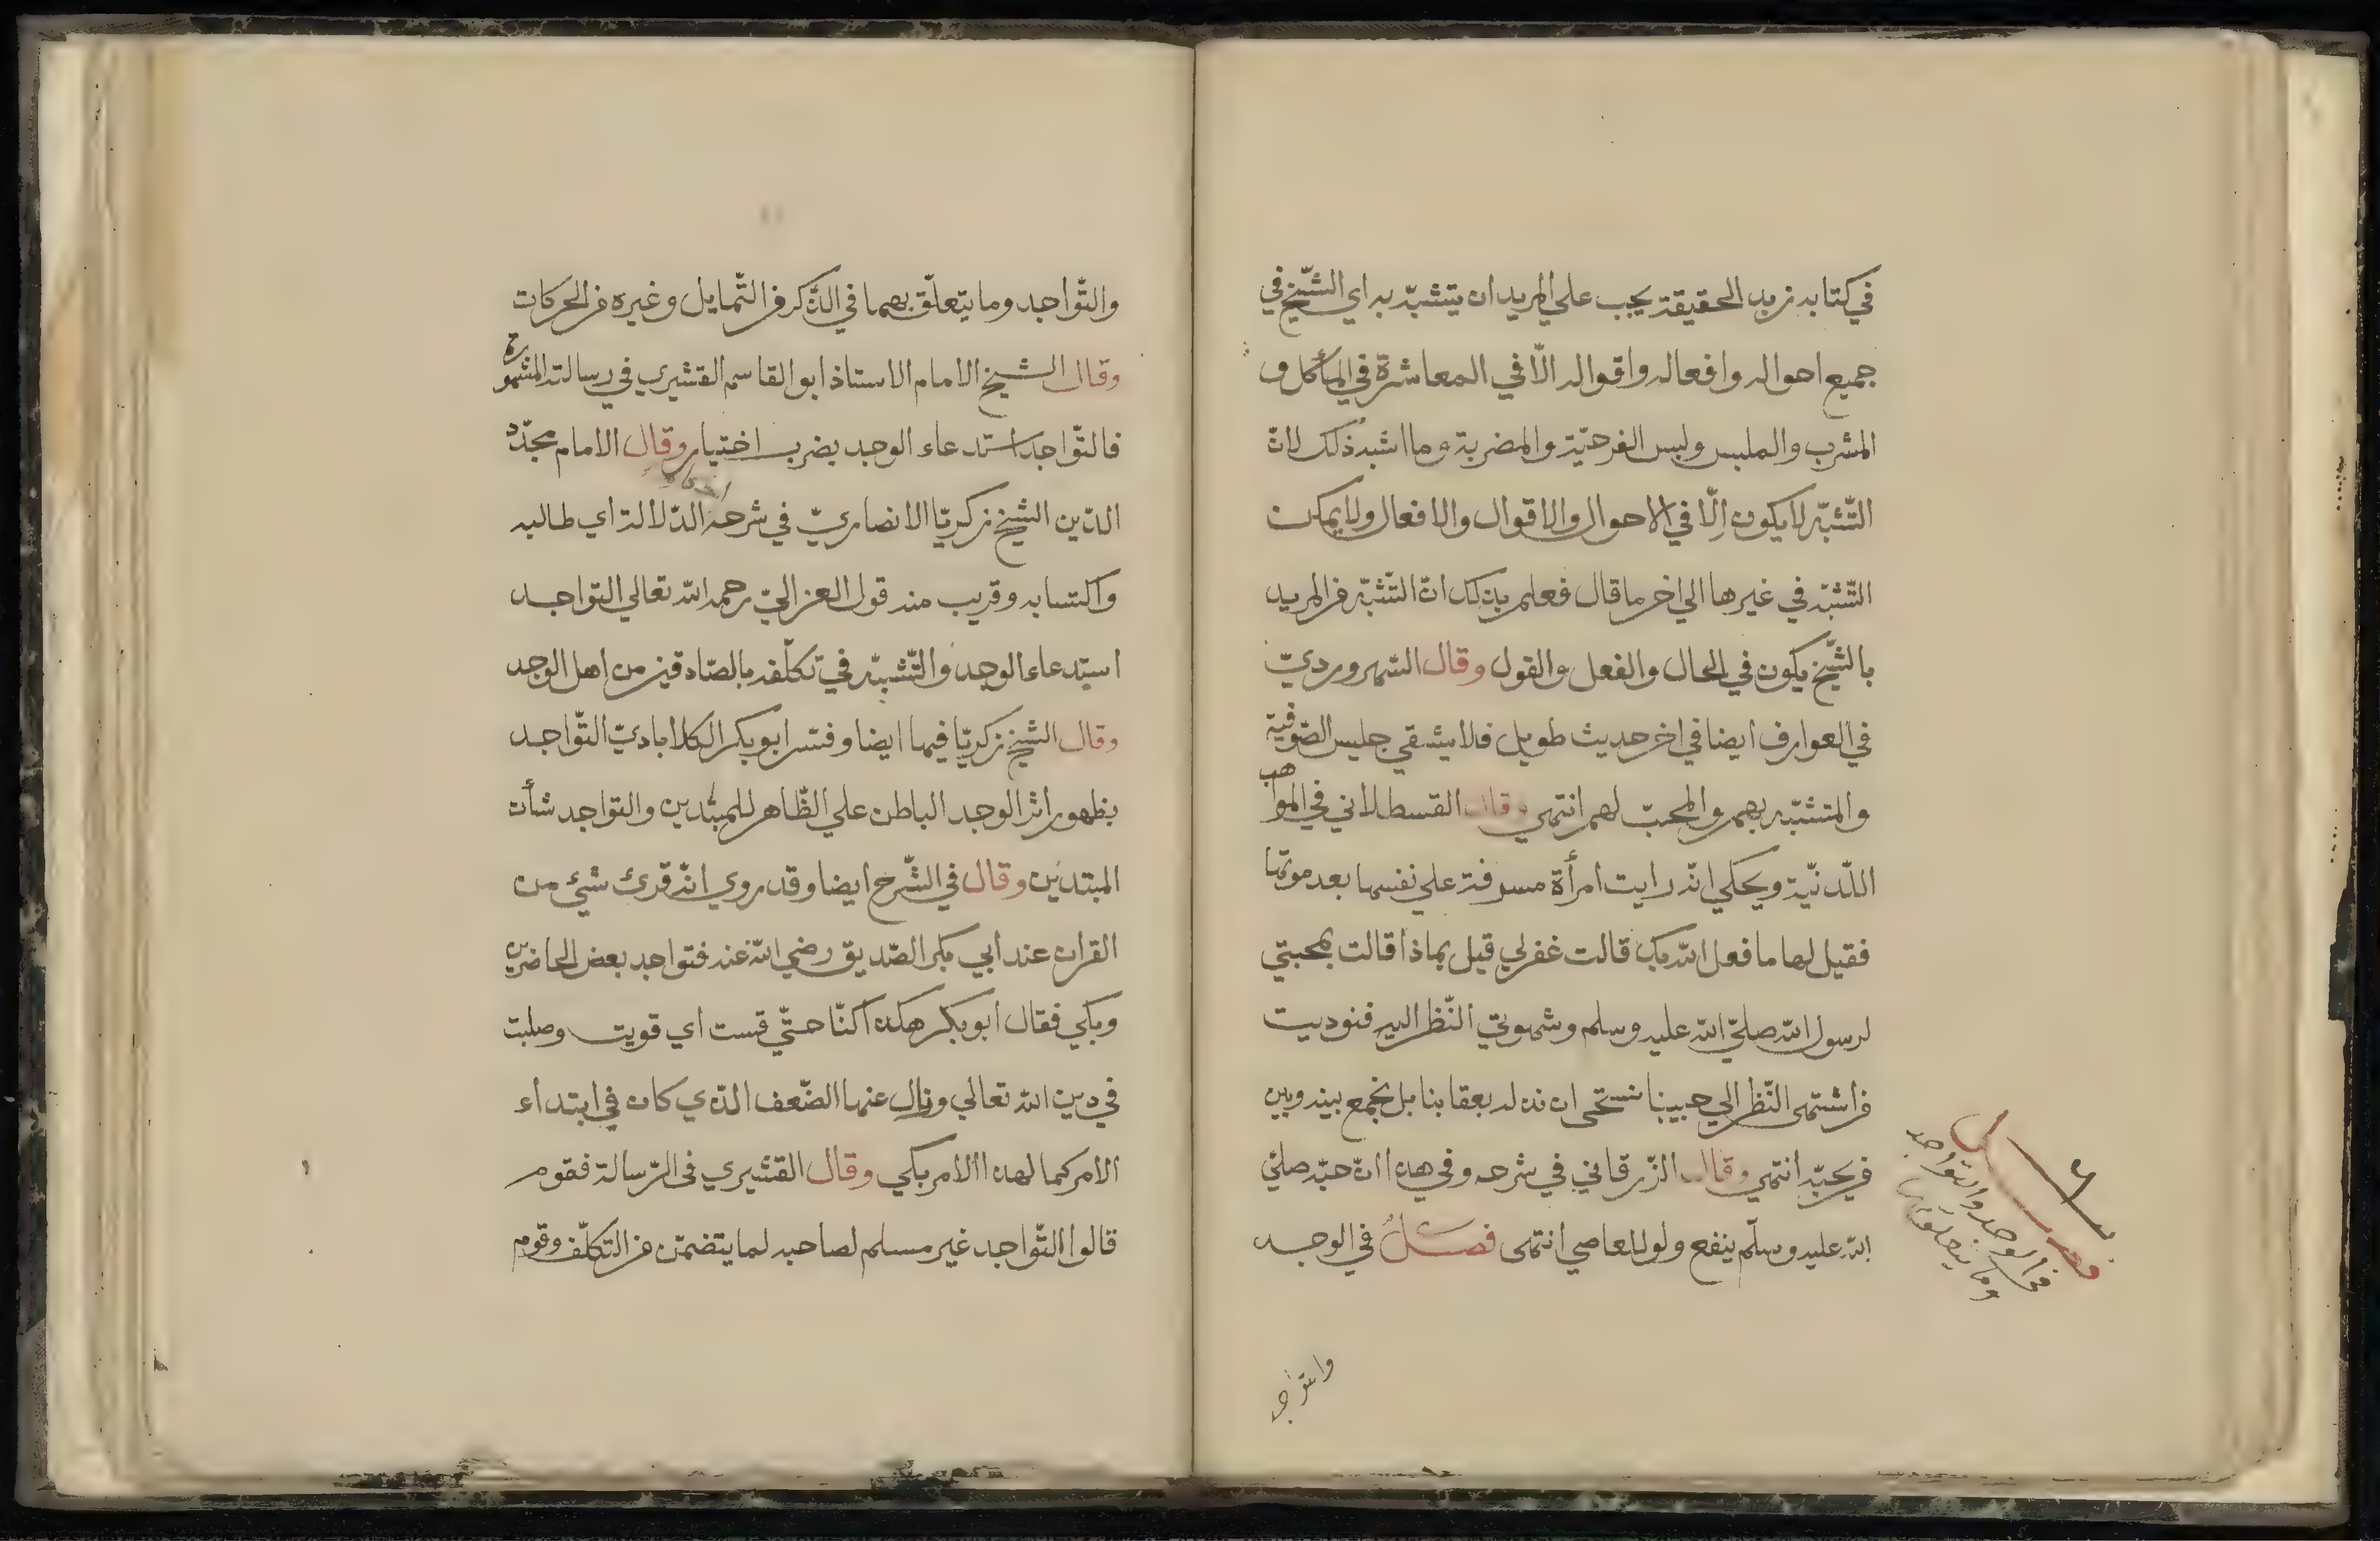 في كتابه زبد الحقيقة يجب علي المريد ان يتشبّه به اي الشّيخ في
جميع احواله وافعاله واقواله الّا في المعاشرة في المأكل و
المشرب والملبس ولبس الفرحيّة والمضربة وما اشبه ذلك لانّ
التّشبّه لا يكون إلّا في الاحوال والاقوال والافعال ولا يمكن
التّشبّه في غيرها الي اخر ما قال فعلم بذلك انّ التّشبّه من المريد
بالشّيخ يكون في الحال والفعل والقول وقال السّهرورديّ
في العوارف ايضا في اخر حديث طويل فلا يشقي جليس الصّوفية
والمتشبّه بهم والمحبّ لهم انتهي وقال القسطلاني في المواهب
اللّدنيّة ويحكي انّه رايت امرأة مسرفة علي نفسها بعد موتها
فقيل لها ما فعل الله بك قالت غفر لي قيل بماذا قالت بمحبتي
لرسول الله صلّي الله عليه وسلم وشهوتي النّظر اليه فنوديت
من اشتهى النّظر الي حبيبنا نستحي ان نذله بعقابنا بل نجمع بينه وبين
من يحبّه انتهي وقال الزّرقاني في شرحه وفي هذا انّ حبّه صلي
الله عليه وسلّم ينفع ولو للعاصي انتهى فصل في الوجد
فصل
في الوجد والتواجد
وما يتعلق بهما
والتواجد
والتّواجد وما يتعلّق بهما في الذّكر من التّمايل وغيره من الحركات
وقال الشيخ الامام الاستاذ ابو القاسم القشيري في رسالته المشهورة
فالتّواجد استدعاء الوجد بضرب اختيار وقال الامام مجدّد
الدّين الشيخ زكريّا الانصاريّ في شرحه الدّلالة اي طالبه
واكتسابه وقريب منه قول الغزاليّ رحمه الله تعالي التواجد
استدعاء الوجد والتّشبّه في تكلّفه بالصّادقين من اهل الوجد
وقال الشيخ زكريّا فيها ايضا وفسّر ابو بكر الكلاباديّ التّواجد
بظهور اثر الوجد الباطن علي الظّاهر للمبتدين والتواجد شأن
المبتدئين وقال في الشّرح ايضا وقد روي انّه قرئ شئ من
القران عند أبي بكر الصّديق رضي الله عنه فتواجد بعض الحاضرين
وبكي فقال أبو بكر هكذا كنّا حتّي قست اي قويت وصلبت
في دين الله تعالي وزال عنها الضّعف الذّي كان في ابتداء
الامر كما لهذا الامر بكي وقال القشيري في الرّسالة فقوم
قالوا التّواجد غير مسلم لصاحبه لما يتضمّن من التكلّف وقوم